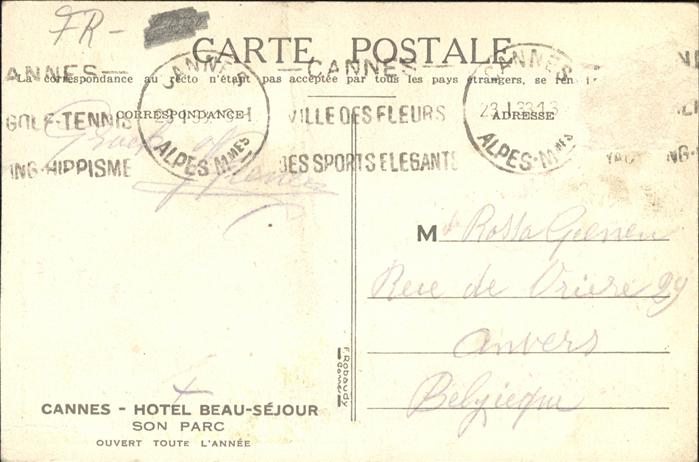 FR-
CARTE POSTALE
La correspondance au recto n'étant pas acceptée par tous les pays étrangers, se ren
CANNES
ALPES-MMES
ANNES — CANNES —
GOLF-TENNIS VILLE DES FLEURS
ING-HIPPISME DES SPORTS ELEGANTS
CANNES
ALPES-MMES
CORRESPONDANCE
ADRESSE
M
Rue de
29
Anvers
Belgique
F. Robaudy
Cannes
CANNES - HOTEL BEAU-SÉJOUR
SON PARC
OUVERT TOUTE L'ANNÉE